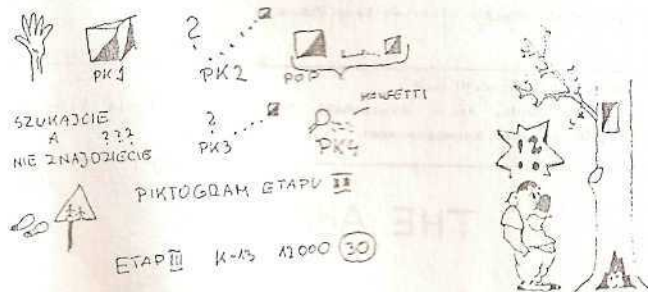 ?
PK1
PK2
POP
SZUKAJCIE
A ???
NIE ZNAJDZIECIE
?
PK3
KONFETTI
PK4
!?
PIKTOGRAM ETAPU III
ETAP III K-13 12000 30
THE A